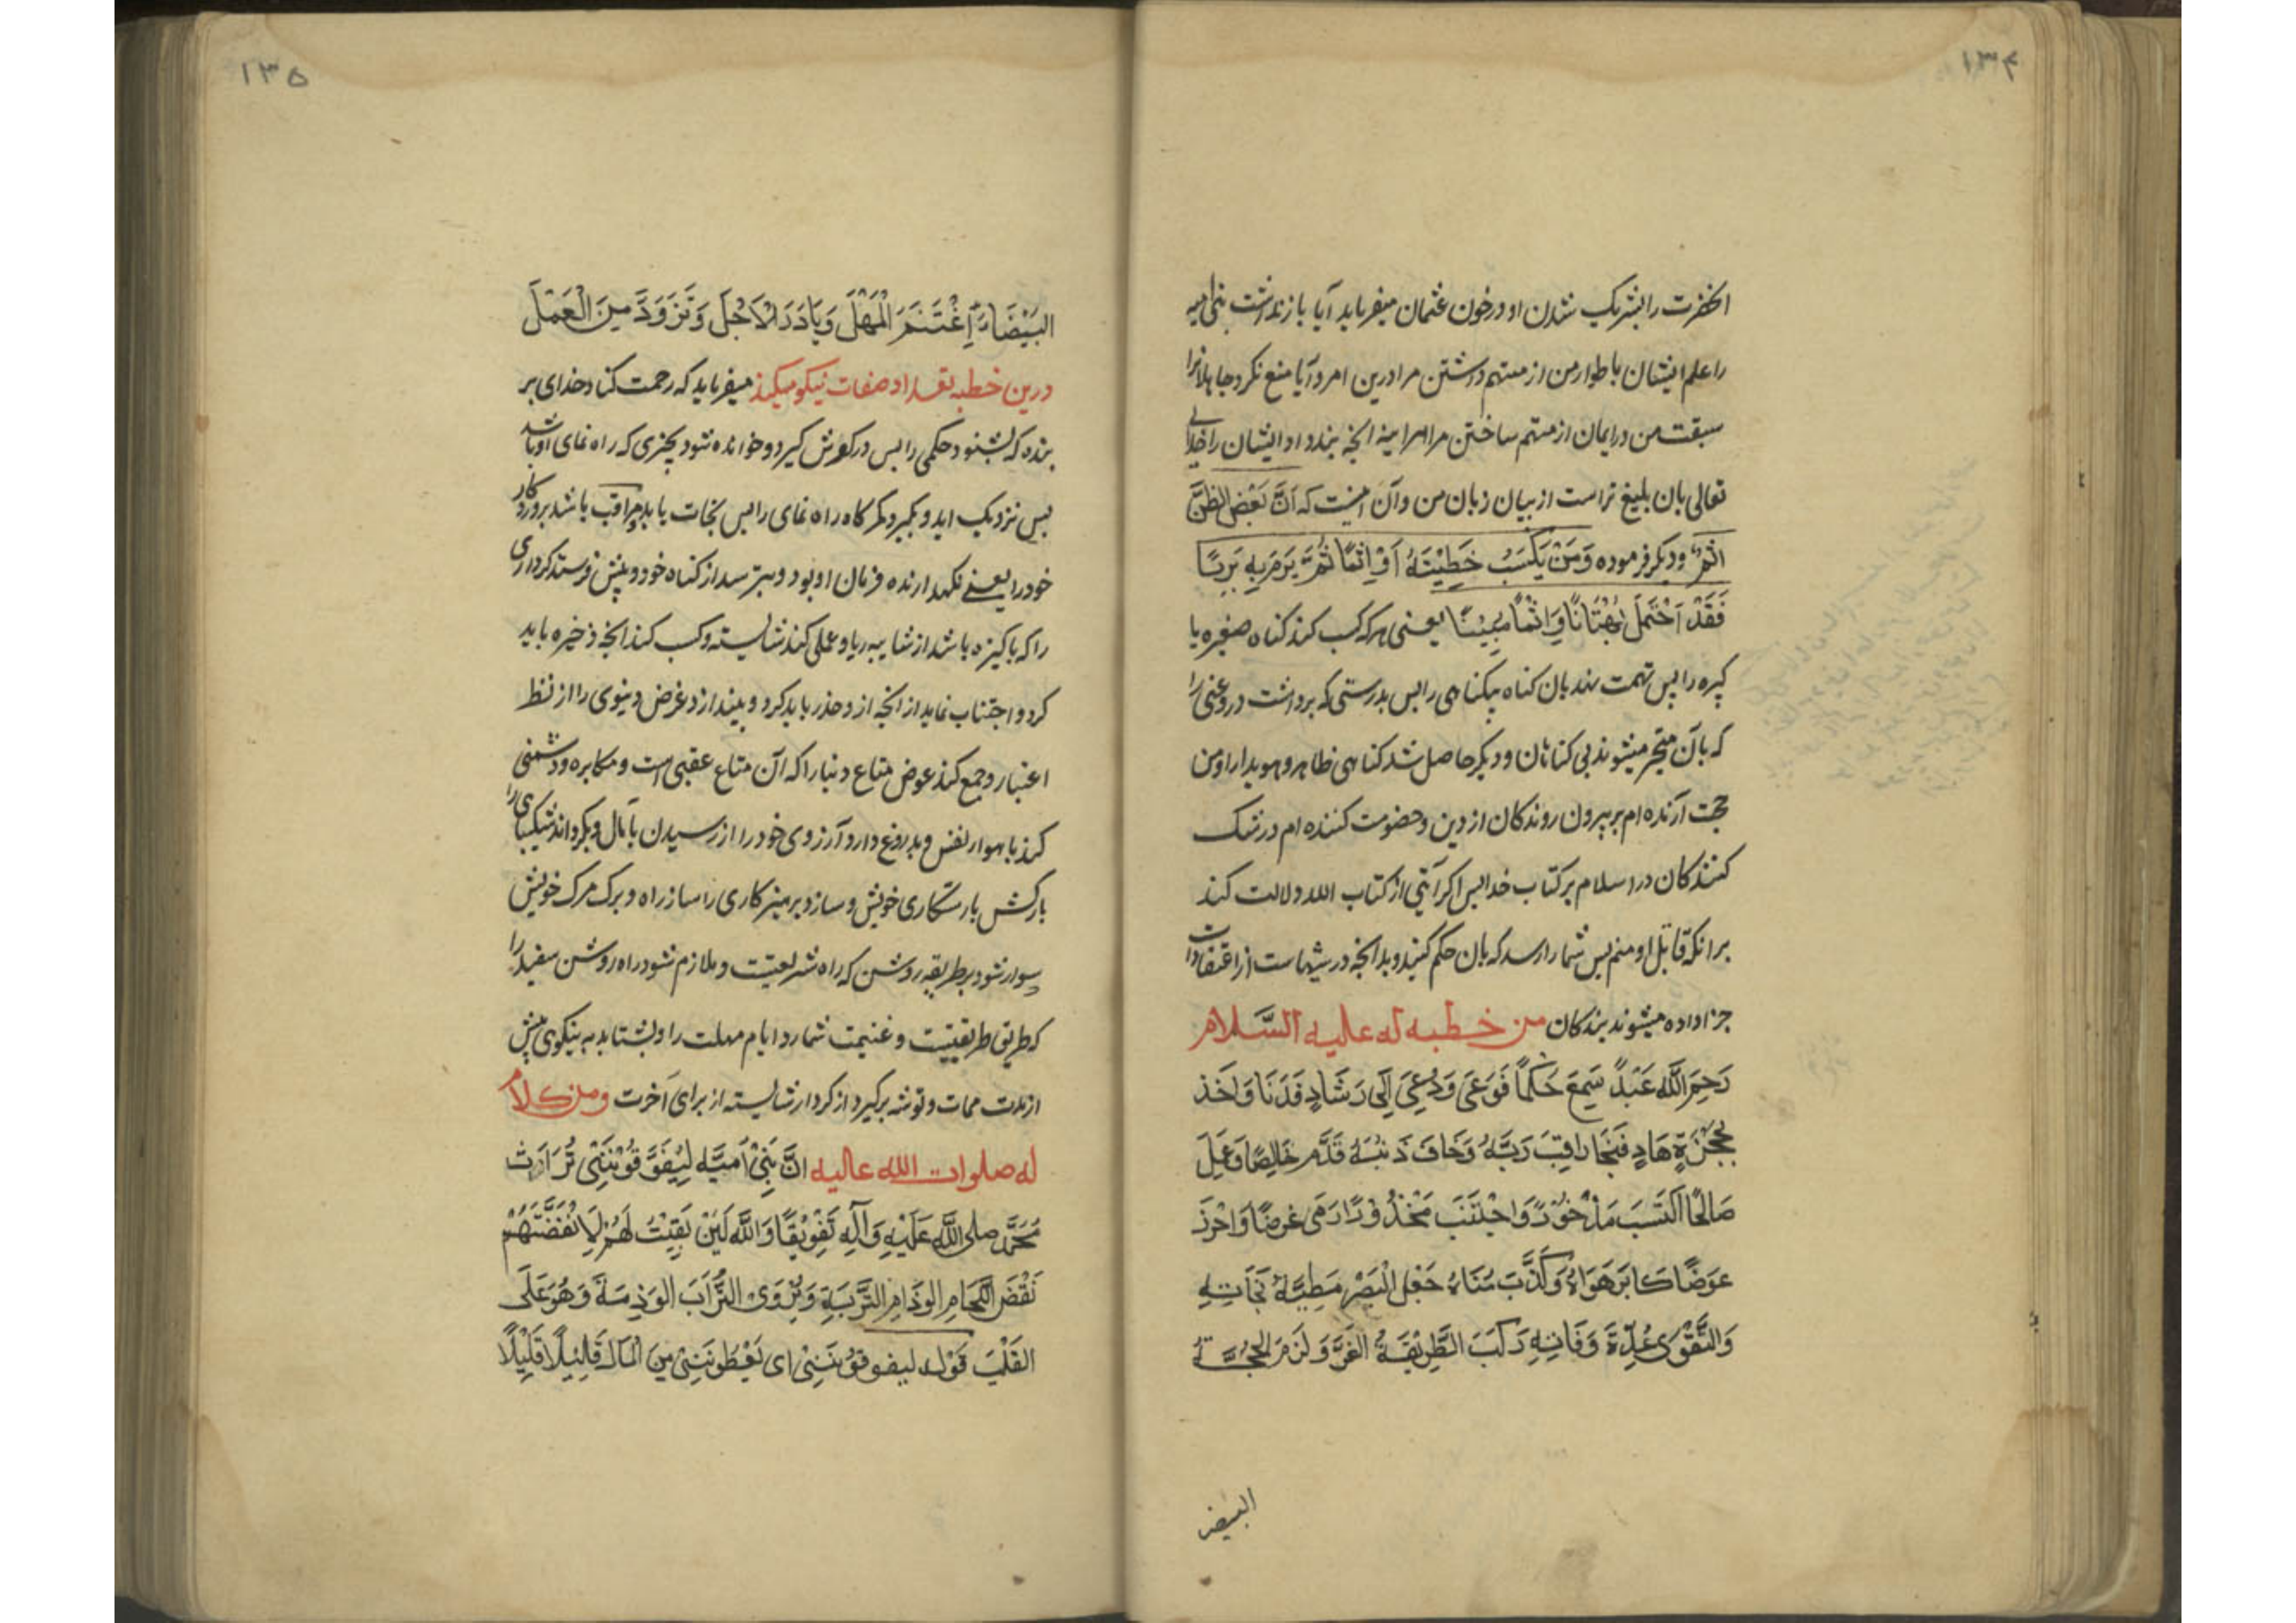 ۱۳۴
انحضرت را بشریک شدن او در خون عثمان میفرماید آیا بازنداشت بنی امیه
را علم ایشان باطوار من از متهم داشتن مرا درین امر و آیا منع نکرد جاهلانرا
سبقت من در ایمان از متهم ساختن مرا هر اینه انچه پند داد ایشان را خدای
تعالی بان بلیغ تر است از بیان زبان من و آن اینست که اَنَّ بَعْضَ الظَّنِّ
اِثْمٌ و دیگر فرموده وَمَنْ یَکْسِبْ خَطِیْئَةً اَوْ اِثْمًا ثُمَّ یَرْمِ بِهِ بَرِیًا
فَقَدْ اَحْتَمَلَ بُهْتَانًا وَاِثْمًا مُبِیْنًا یعنی هر که کسب کند کناه صغیره یا
کبیره را پس تهمت نهد بان کناه بیکناهی را پس بدرستی که برداشت دروغی را
که بآن متحیر میشوند بی کناهان و دیگر حاصل شد کناهی ظاهر و هویدا را و من
حجت آرنده ام بر بیرون روندکان از دین و خصومت کننده ام در شک
کنندکان در اسلام بر کتاب خدا پس اکر آیتی از کتاب الله دلالت کند
برانکه قاتل او منم پس شما را رسد که بان حکم کنید و بدانچه در سینهاست از اعتقادات
جزا داده میشوند بندکان من خطبه له علیه السَّلام
رَحِمَ اللَّه عَبْدً سَمِعَ حَکَمًا فَوَعَی وَدُعِیَ اِلَی رَشَادٍ فَدَنَا وَاَخَذ
بِحُجْزَةِ هَادٍ فَنَجَا رَاقَبَ رَبَّهُ وَخَافَ ذَنْبَهُ قَدَّمَ خَالِصًا وَعَمِلَ
صَالِحًا اَکْتَسَبَ مَذْخُوْرًا وَاجْتَنَبَ مَحْذُوْرًا رَمَی غَرَضًا وَاحْرَزَ
عِوَضًا کَابَرَ هَوَاهُ وَکَذَّبَ مُنَاهُ جَعَلَ الْصَبْرَ مَطِیَّةَ نَجَاتِهِ
وَالتَّقْوَی عُدَّةَ وَفَاتِهِ رَکِبَ الطَّرِیْقَةَ الغَرَّ وَلَزِمَ الْمَحَجَّةَ
البیض
۱۳۵
البَیْضَاءَ اِغْتَنَمَ الْمَهَلَ وَبَادَرَ الاَجَلَ وَتَزَوَّدَ مِنَ الْعَمَلَ
درین خطبه تعداد صفات نیکو میکند میفرماید که رحمت کناد خدای بر
بنده که بشنود حکمی را پس در کوش کیرد و خوانده شود بچیزی که راه نمای او باشد
پس نزدیک اید و بکیرد کمرکاه راه نمای را پس نجات یابد مراقب باشد پروردکار
خود را یعنی نکهدارنده فرمان او بود و بترسد از کناه خود و پیش فرستد کرداری
را که پاکیزه باشد از شایبه ریا و عملی کند شایسته و کسب کند انچه ذخیره باید
کرد و اجتناب نماید از انچه از و حذر باید کرد و بیندازد غرض دنیوی را از نظر
اعتبار و جمع کند عوض متاع دنیا را که آن متاع عقبی است و مکابره و دشمنی
کند با هواء نفس و بدروغ دارد آرزوی خود را از رسیدن بآمال و بکرداند شکیبای را
بارکش بار رستکاری خویش و سازد پرهیزکاری را ساز راه و برک مرک خویش
سوار شود بر طریقه روشن که راه شریعتست و ملازم شود راه روشن سفید را
که طریق طریقتیست و غنیمت شمارد ایام مهلت را و بشتابد به نیکوی پیش
از مدت ممات و توشه برکیرد از کردار شایسته از برای آخرت ومن کلام
له صلوات الله علیه انَّ بَنِیْ اُمَیَّه لَیُفَوِّقُوْنَنِی تُرَاثَ
مُحَمَّدٍ صلی اللَّه عَلَیْهِ وَآلِهِ تَفْوِیْقًا وَاللَّه لَئِنْ بَقِیْتُ لَهُمْ لَاَنْفُضَنَّهُمْ
نَفْضَ اللَّحَامِ الوِذَامِ التَّرِبَةِ وَیُرْوَی التُّرَابَ الوَذِمَةَ وَهُوَ عَلَی
القَلْبِ قَوْله لیفوقُوْنَنِیْ ای یُعْطُونَنِیْ مِنَ الْمَالِ قَلِیْلًا قَلِیْلًا